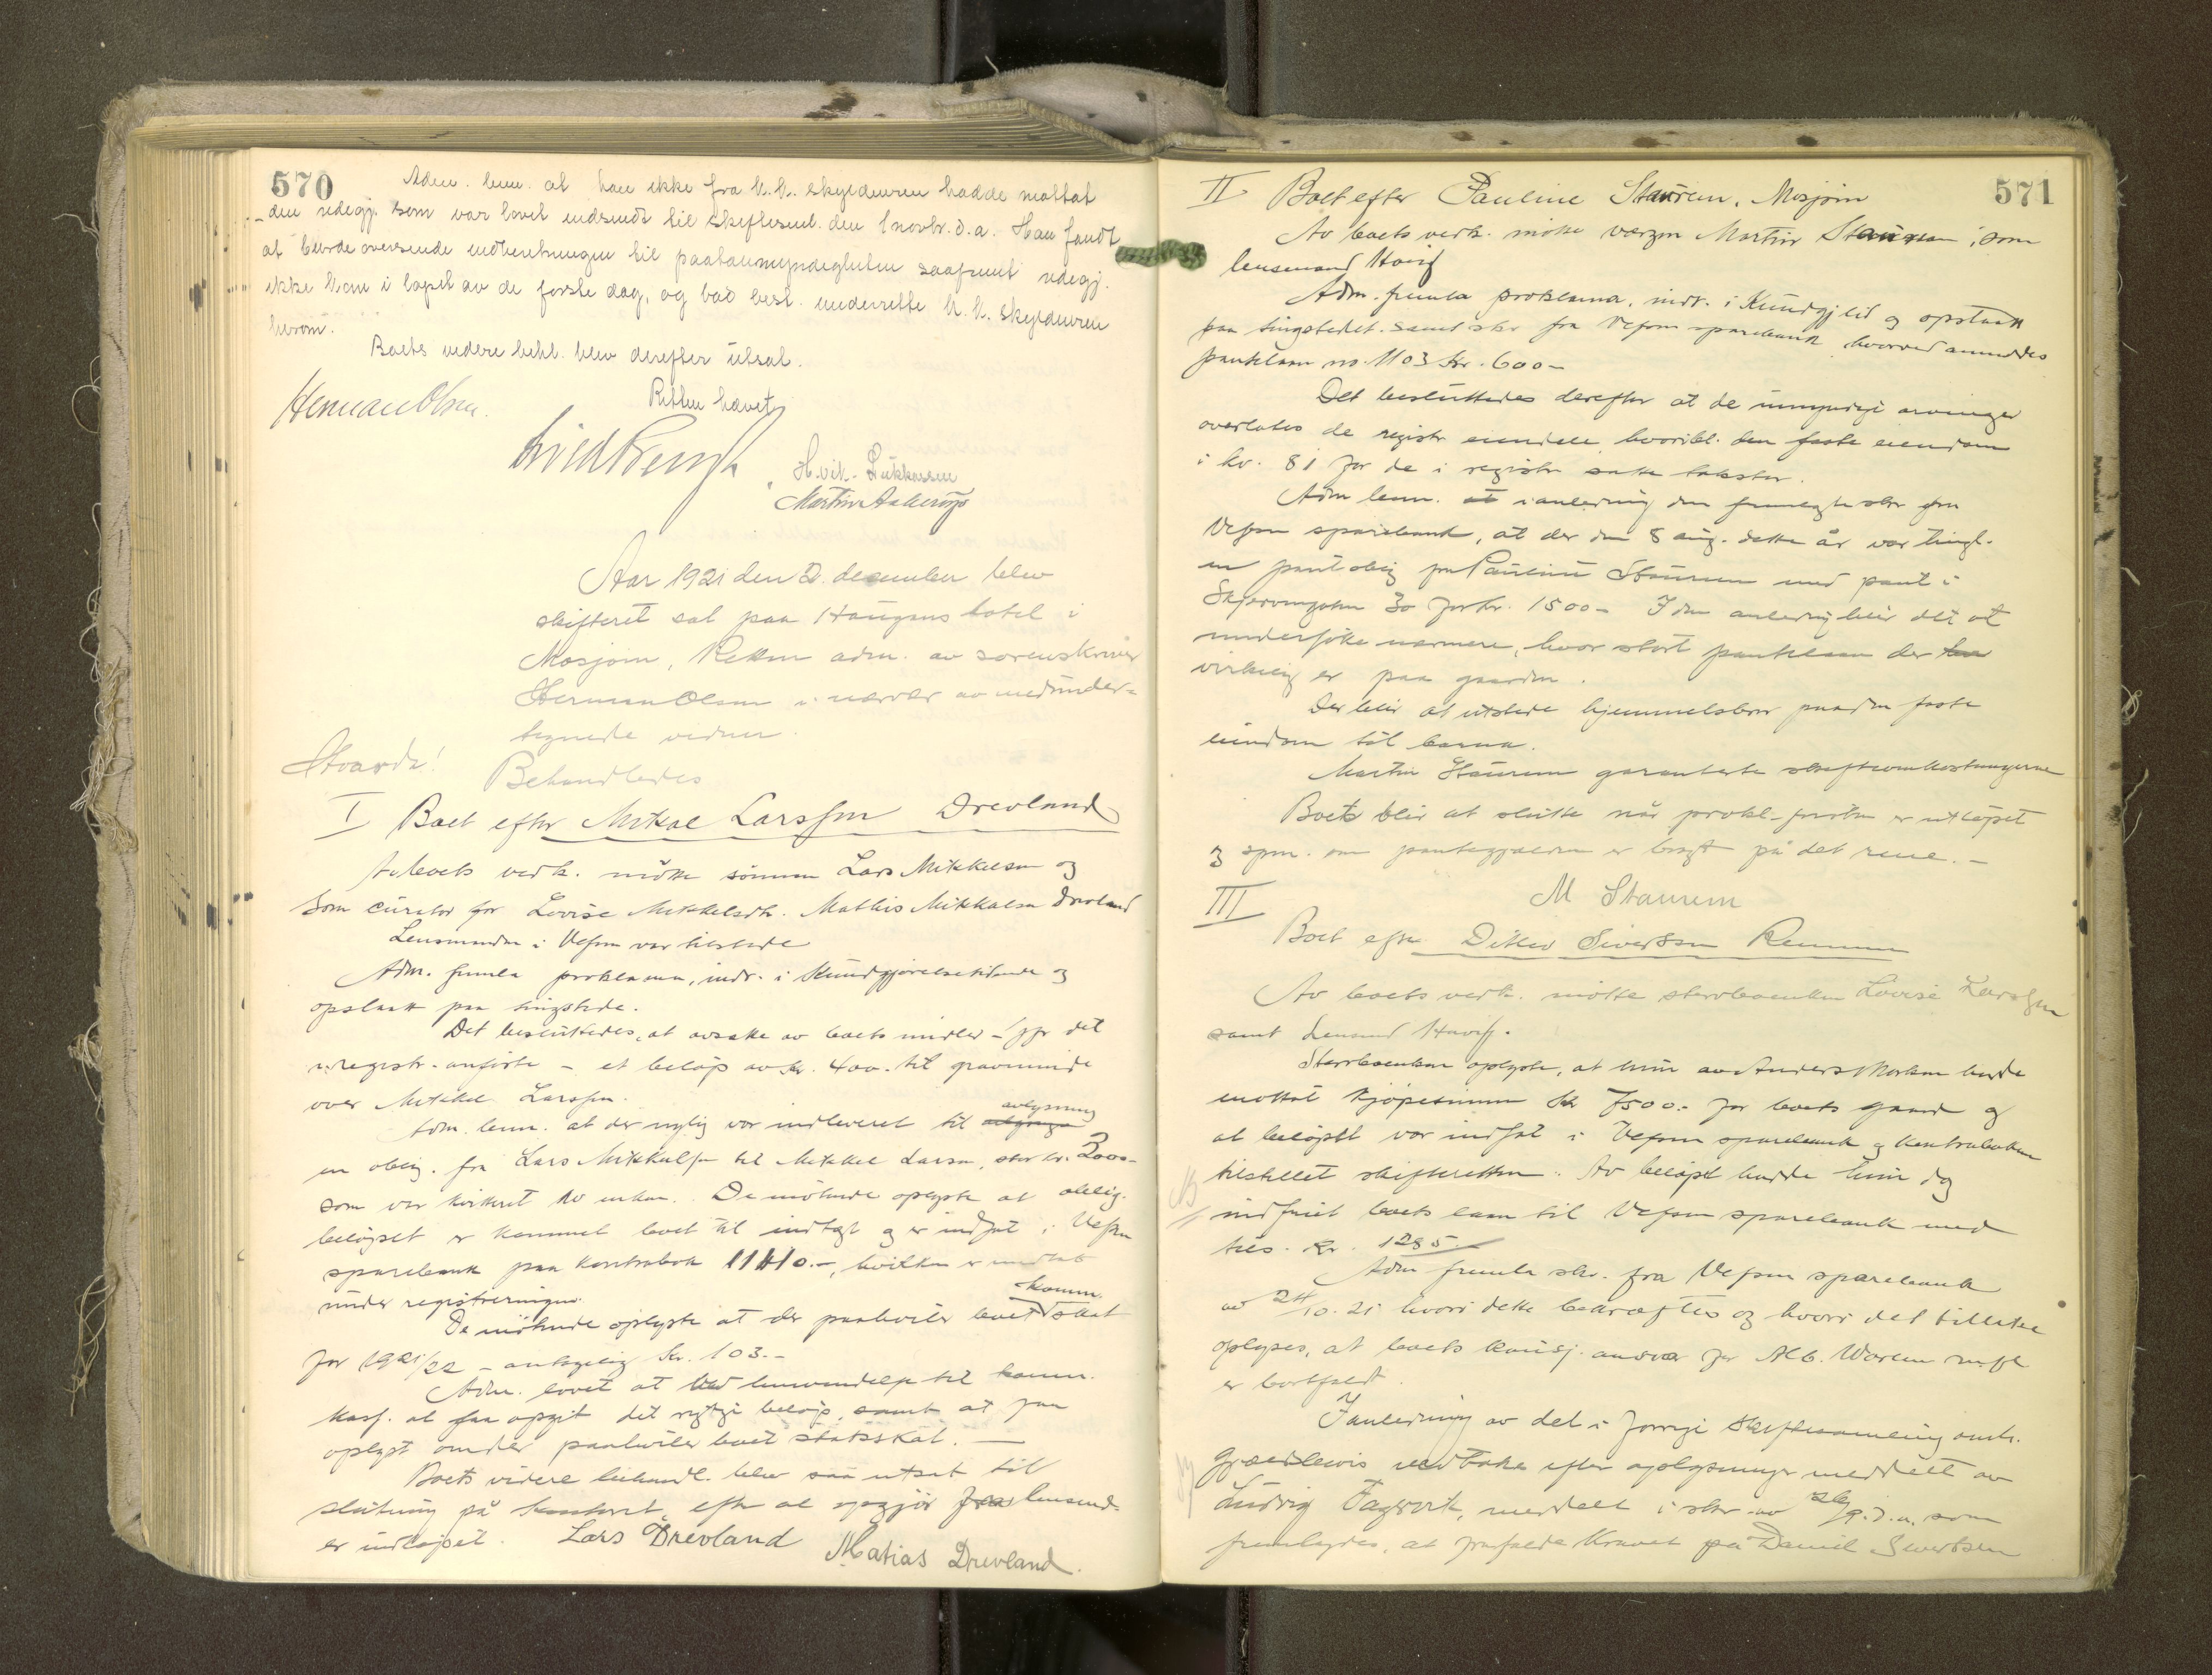 570
Adm. bem. at han ikke fra k.k. skyldneren hadde mottat
den redegj. som var lovet indsendt til skiftesml. den 1 novbr. d.a. Han fandt
at burde oversende indberetningen til paatalemyndigheten saafremt redegj.
ikke kom i løpet av de første dag, og bad best. underrette k.k. skyldneren
herom.
Boets videre behl. blev derefter utsat.
Retten hævet
Herman Olsen.
H. vit. Lukkassen
Martin Aakerøy
Aar 1921 den 2. december blev
skifteret sat paa Haugans hotel i
Mosjøen, Retten adm. av sorenskriver
Herman Olsen i nærvær av medunder-
tegnede vidner.
Behandledes
I Boet efter Mikkel Larssen Drevland
Av boets vedk. møtte sønnen Lars Mikkelsen og
som curator for Lovise Mikkelsdtr. Mathis Mikkalsen Drevland
Lensmanden i Vefsn var tilstede
Adm. fremla proklama, indr. i Kundgjørelsestidende og
opslaatt paa tingstede.
Det besluttedes, at avsætte av boets midler - jfr det
i registr. anførte - et beløp av kr. 400.- til gravminde
over Mikkel Larssen.
Adm. bem. at der nylig var indleveret til avlysning
en oblig. fra Lars Mikkelsen til Mikkel Larsen, stor kr. 2000-
som var kvitteret av enken. De møtende oplyste at oblig.
beløpet er kommet boet til indtægt og er indsat i Vefsn
sparebank paa kontrabok 11410.-, hvilken er medtat
under registreringen.
De møtende oplyste at der paahviler boet komm. skat
for 1921/22 - antagelig kr. 103.-
Adm. lovet at ved henvendelse til komm.
kass. at faa opgit det rigtige beløp, samt at faa
oplyst om der paahviler boet statsskat. —
Boets videre behandl. blev saa utsat til
slutning på kontoret, efter at opgjør fra lensmd.
er indløpet. Lars Drevland
Matias Drevland.
571
II Boet efter Pauline Staurem, Mosjøen
Av boets vedk. møtte værgen Martin Staurem, som
lensmand Havig
Adm. fremla proklama, indr. i Kundgj.tid og opslaatt
paa tingstedet. samt skr fra Vefsn sparebank hvorved anmeldes
pantelaan no. 1103 kr. 600-
Det besluttedes derefter at de umyndige arvinger
overlates de registr eiendele hvoribl. den faste eiendom
i kv. 81 for de i registr satte takster.
Adm bem. i anledning den fremlagte skr fra
Vefsn sparebank, at der den 8 aug. dette år var tingl.
en pantoblig fra Pauline Staurem med pant i
30 for kr. 1500- I den anledning blir det at
undersøke nærmere, hvor stort pantelaan der
virkelig er paa gaarden.
Der blir at utstede hjemmelsbrev paa den faste
eiendom til barna.
Martin Staurem garanterte skifteomkostningerne
Boets blir at slutte når prokl-fristen er utløpet
og spm. om pantegjælden er bragt på det rene. -
M Staurem
III
Boet efter Ditlev Sivertsen
Av boets vedk. møtte stervboenken Lovise Larsen
samt Lensmd Havig.
Stervboenken oplyste, at hun av Anders Morken hadde
mottat kjøpesummen kr 7500.- for boets gaard og
at beløpet var indsat i Vefsn sparebank og kontraboken
tilstillet skifteretten. Av beløpet hadde hun dog
indfriet boets laan til Vefsn sparebank med
tils. kr. 1285.-
Adm fremla skr. fra Vefsn sparebank
av 24/10. 21 hvori dette bekræftes og hvori det tillike
oplyses, at boets kausj. ansvar for Alb.
er bortfaldt.
I anledning av det i forrige skiftesamling
efter oplysninger meddelt av
Ludvig Fagervik, meddelt i skr. av
fremlagdes, at frafalde kravet på Daniel Sivertsen